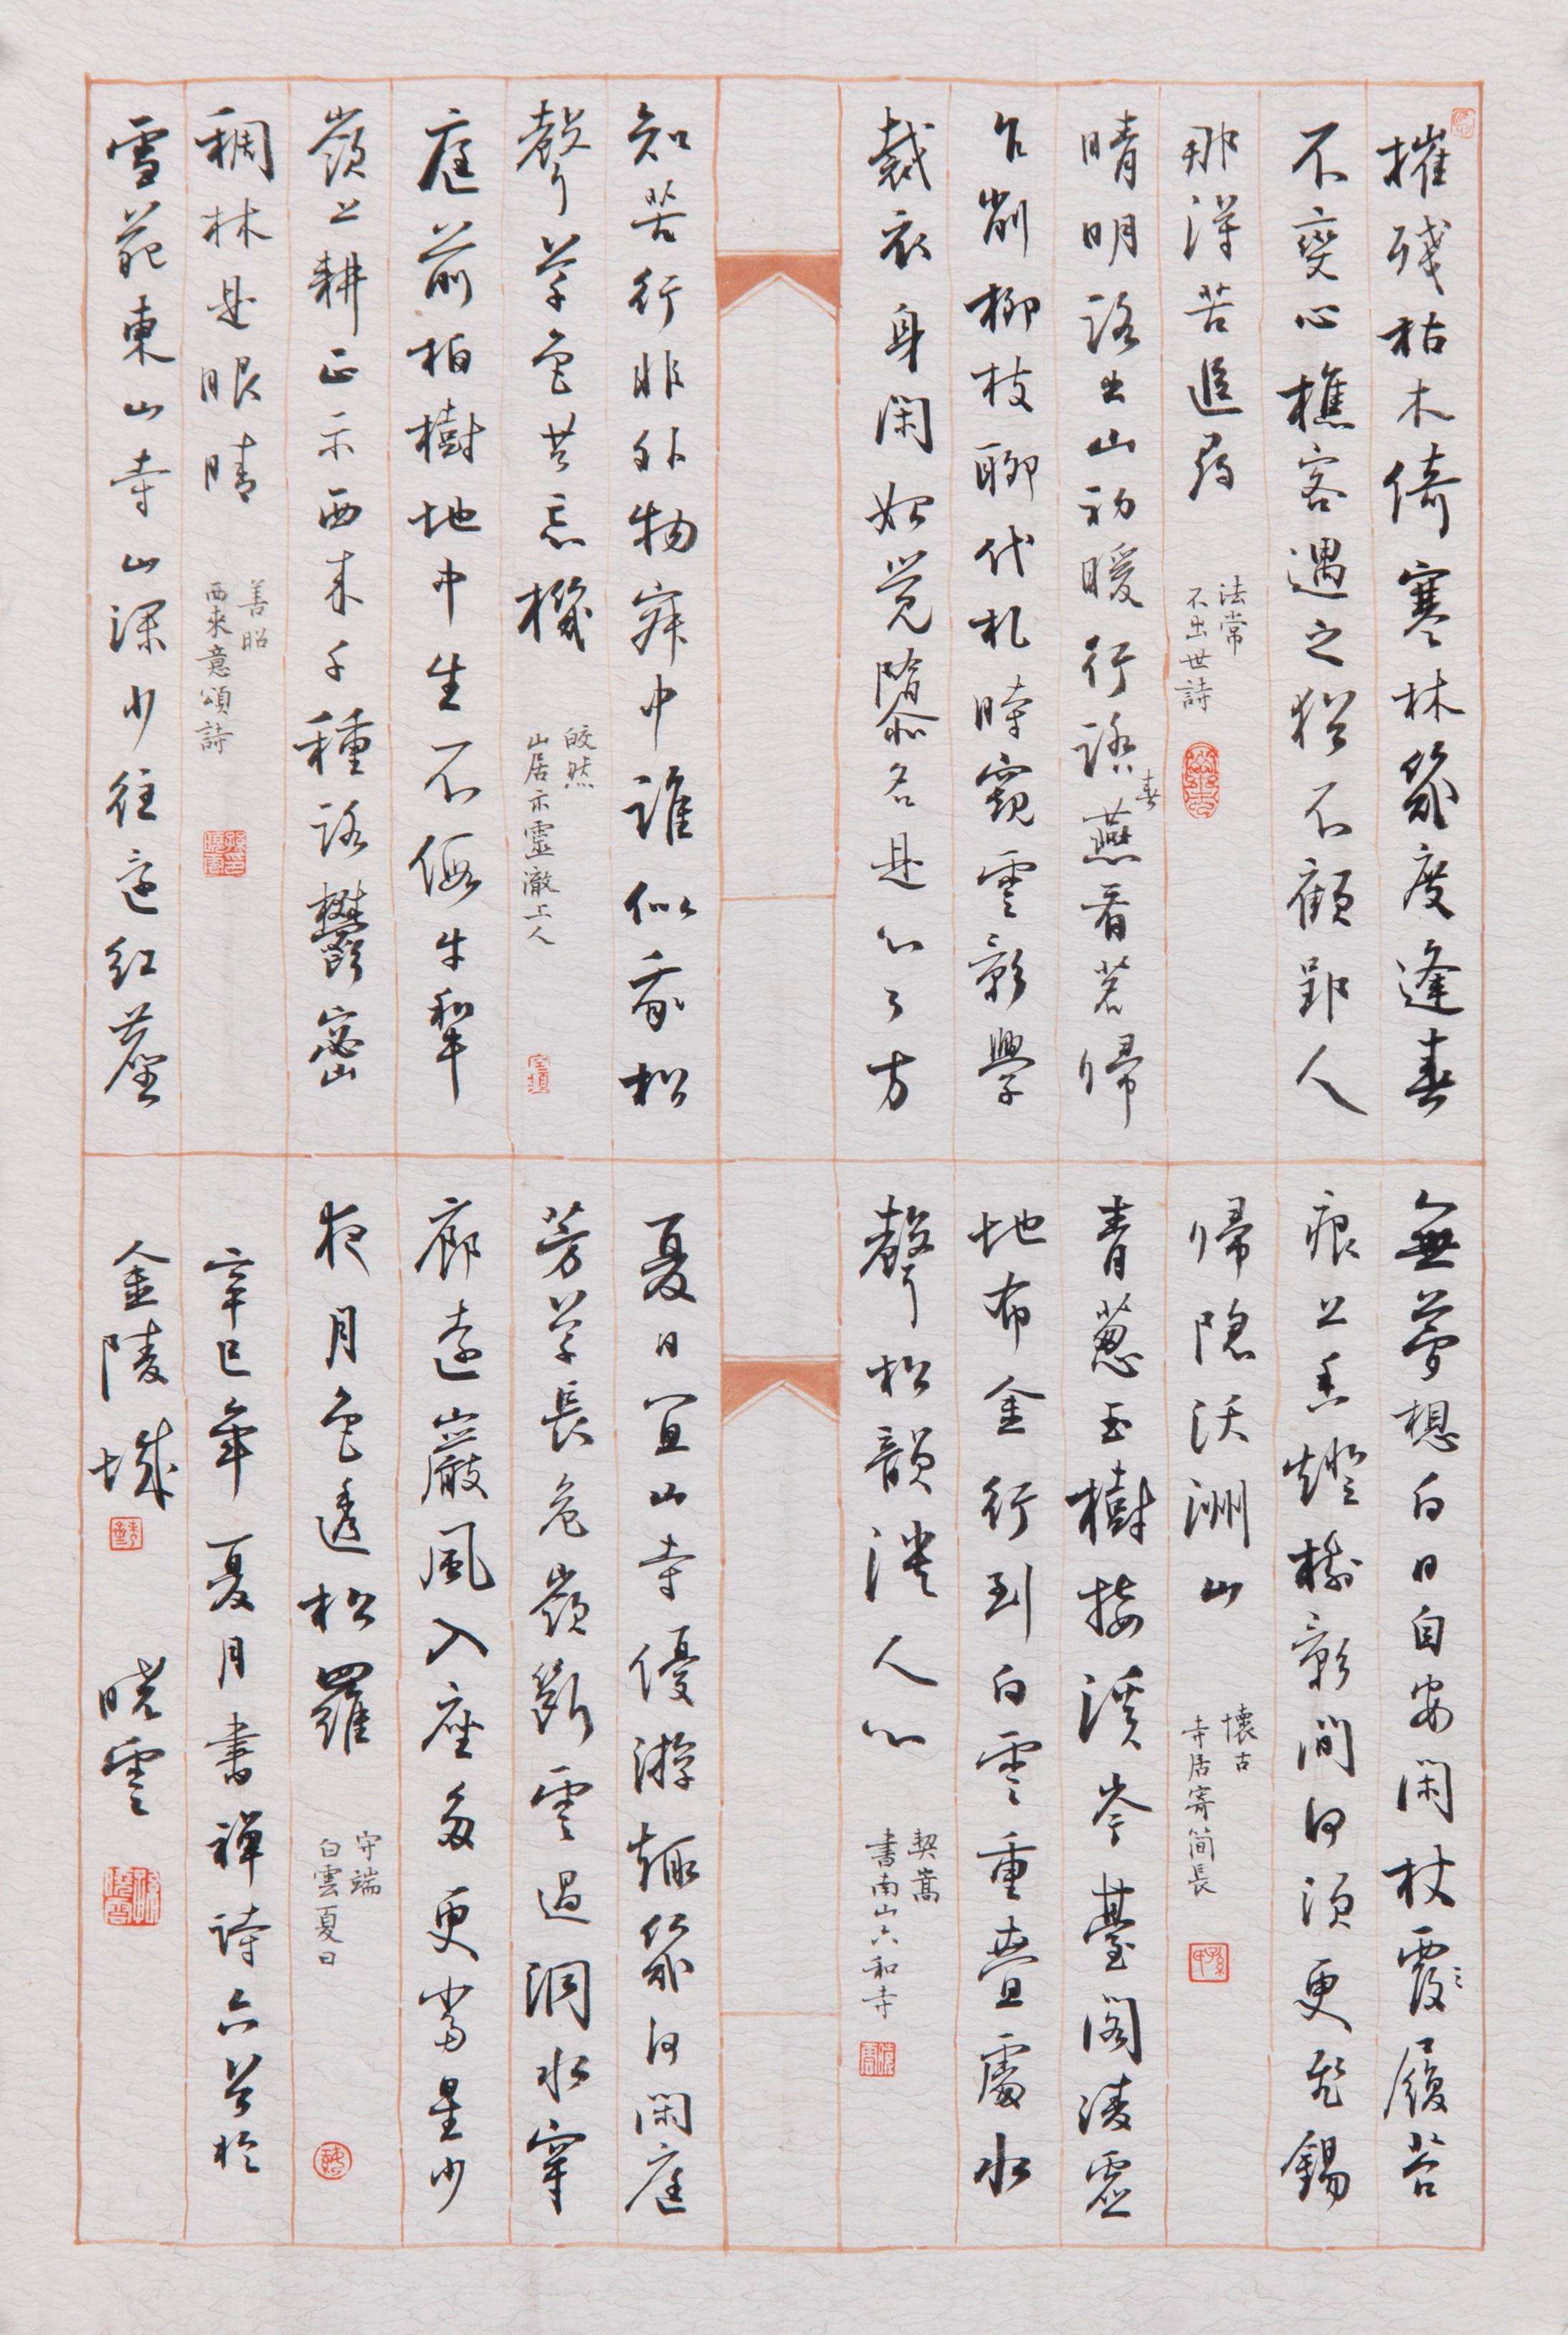 摧殘枯木倚寒林幾度逢春
不變心樵客遇之猶不顧郢人
那得苦追尋
法常
不出世詩
晴明路出山初暖行踏春蕪看茗歸
乍削柳枝聊代札時窺雲影學
裁衣身閑始覺隳名是心了方
知苦行非外物寂中誰似我松
聲草色共忘機
皎然
山居示靈澈上人
庭前柏樹地中生不假牛犁
嶺上耕正示西來千種路鬱密
稠林是眼睛
善昭
西來意頌詩
雪苑東山寺山深少往還紅塵
無夢想白日自安閑杖霞履苔
痕上香燈樹影間何須更飛錫
歸隱沃洲山
懷古
寺居寄簡長
青蔥玉樹接溪岑臺閣淩虛
地布金行到白雲重疊處水
聲松韻淡人心
契嵩
書南山六和寺
夏日宜山寺優游趣幾何閑庭
芳草長危嶺斷雲過澗水穿
廊遠巖風入座多更當星少
夜月色透松羅
守端
白雲夏日
辛巳年夏月書禪詩六首於
金陵城 曉雲